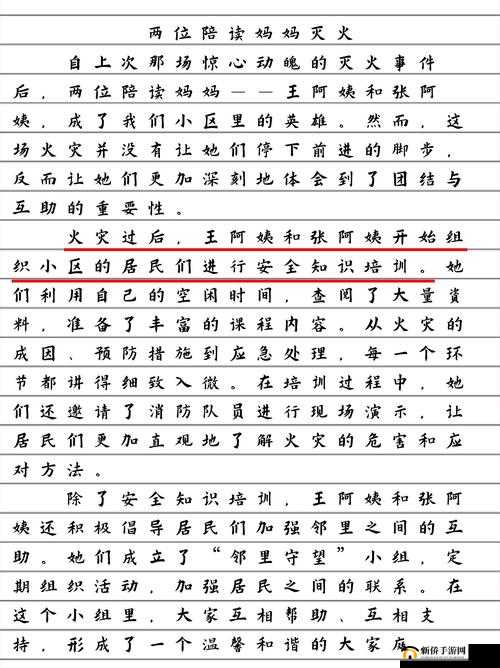 两位陪读妈妈灭火
自上次那场惊心动魄的灭火事件
后，两位陪读妈妈——王阿姨和张阿
姨，成了我们小区里的英雄。然而，这
场火灾并没有让她们停下前进的脚步，
反而让她们更加深刻地体会到了团结与
互助的重要性。
火灾过后，王阿姨和张阿姨开始组
织小区的居民们进行安全知识培训。她
们利用自己的空闲时间，查阅了大量资
料，准备了丰富的课程内容。从火灾的
成因、预防措施到应急处理，每一个环
节都讲得细致入微。在培训过程中，她
们还邀请了消防队员进行现场演示，让
居民们更加直观地了解火灾的危害和应
对方法。
除了安全知识培训，王阿姨和张阿
姨还积极倡导居民们加强邻里之间的互
助。她们成立了“邻里守望”小组，定
期组织活动，加强居民之间的联系。在
这个小组里，大家互相帮助、互相支
持，形成了一个温馨和谐的大家庭
新侨手游网